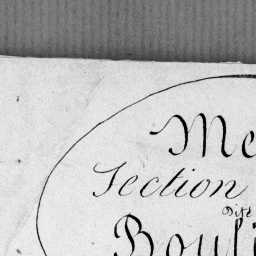 Me
Section
Dist
Bouli